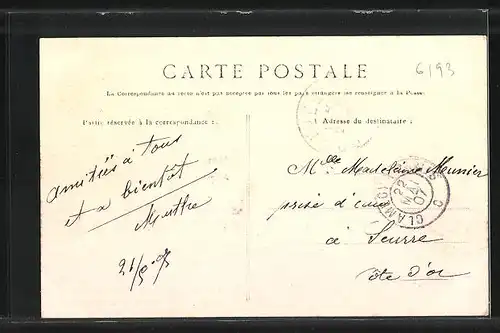 CARTE POSTALE
6193
La Correspondance au verso n'est pas acceptée par tous les pays étrangers (se renseigner à la Poste)
Partie réservée à la correspondance :
Adresse du destinataire :
amitiés à tous
et a bientot
21/5-05
Mlle Madelaine Meunier
à Seurre
Côte d'or
22
MAI
07